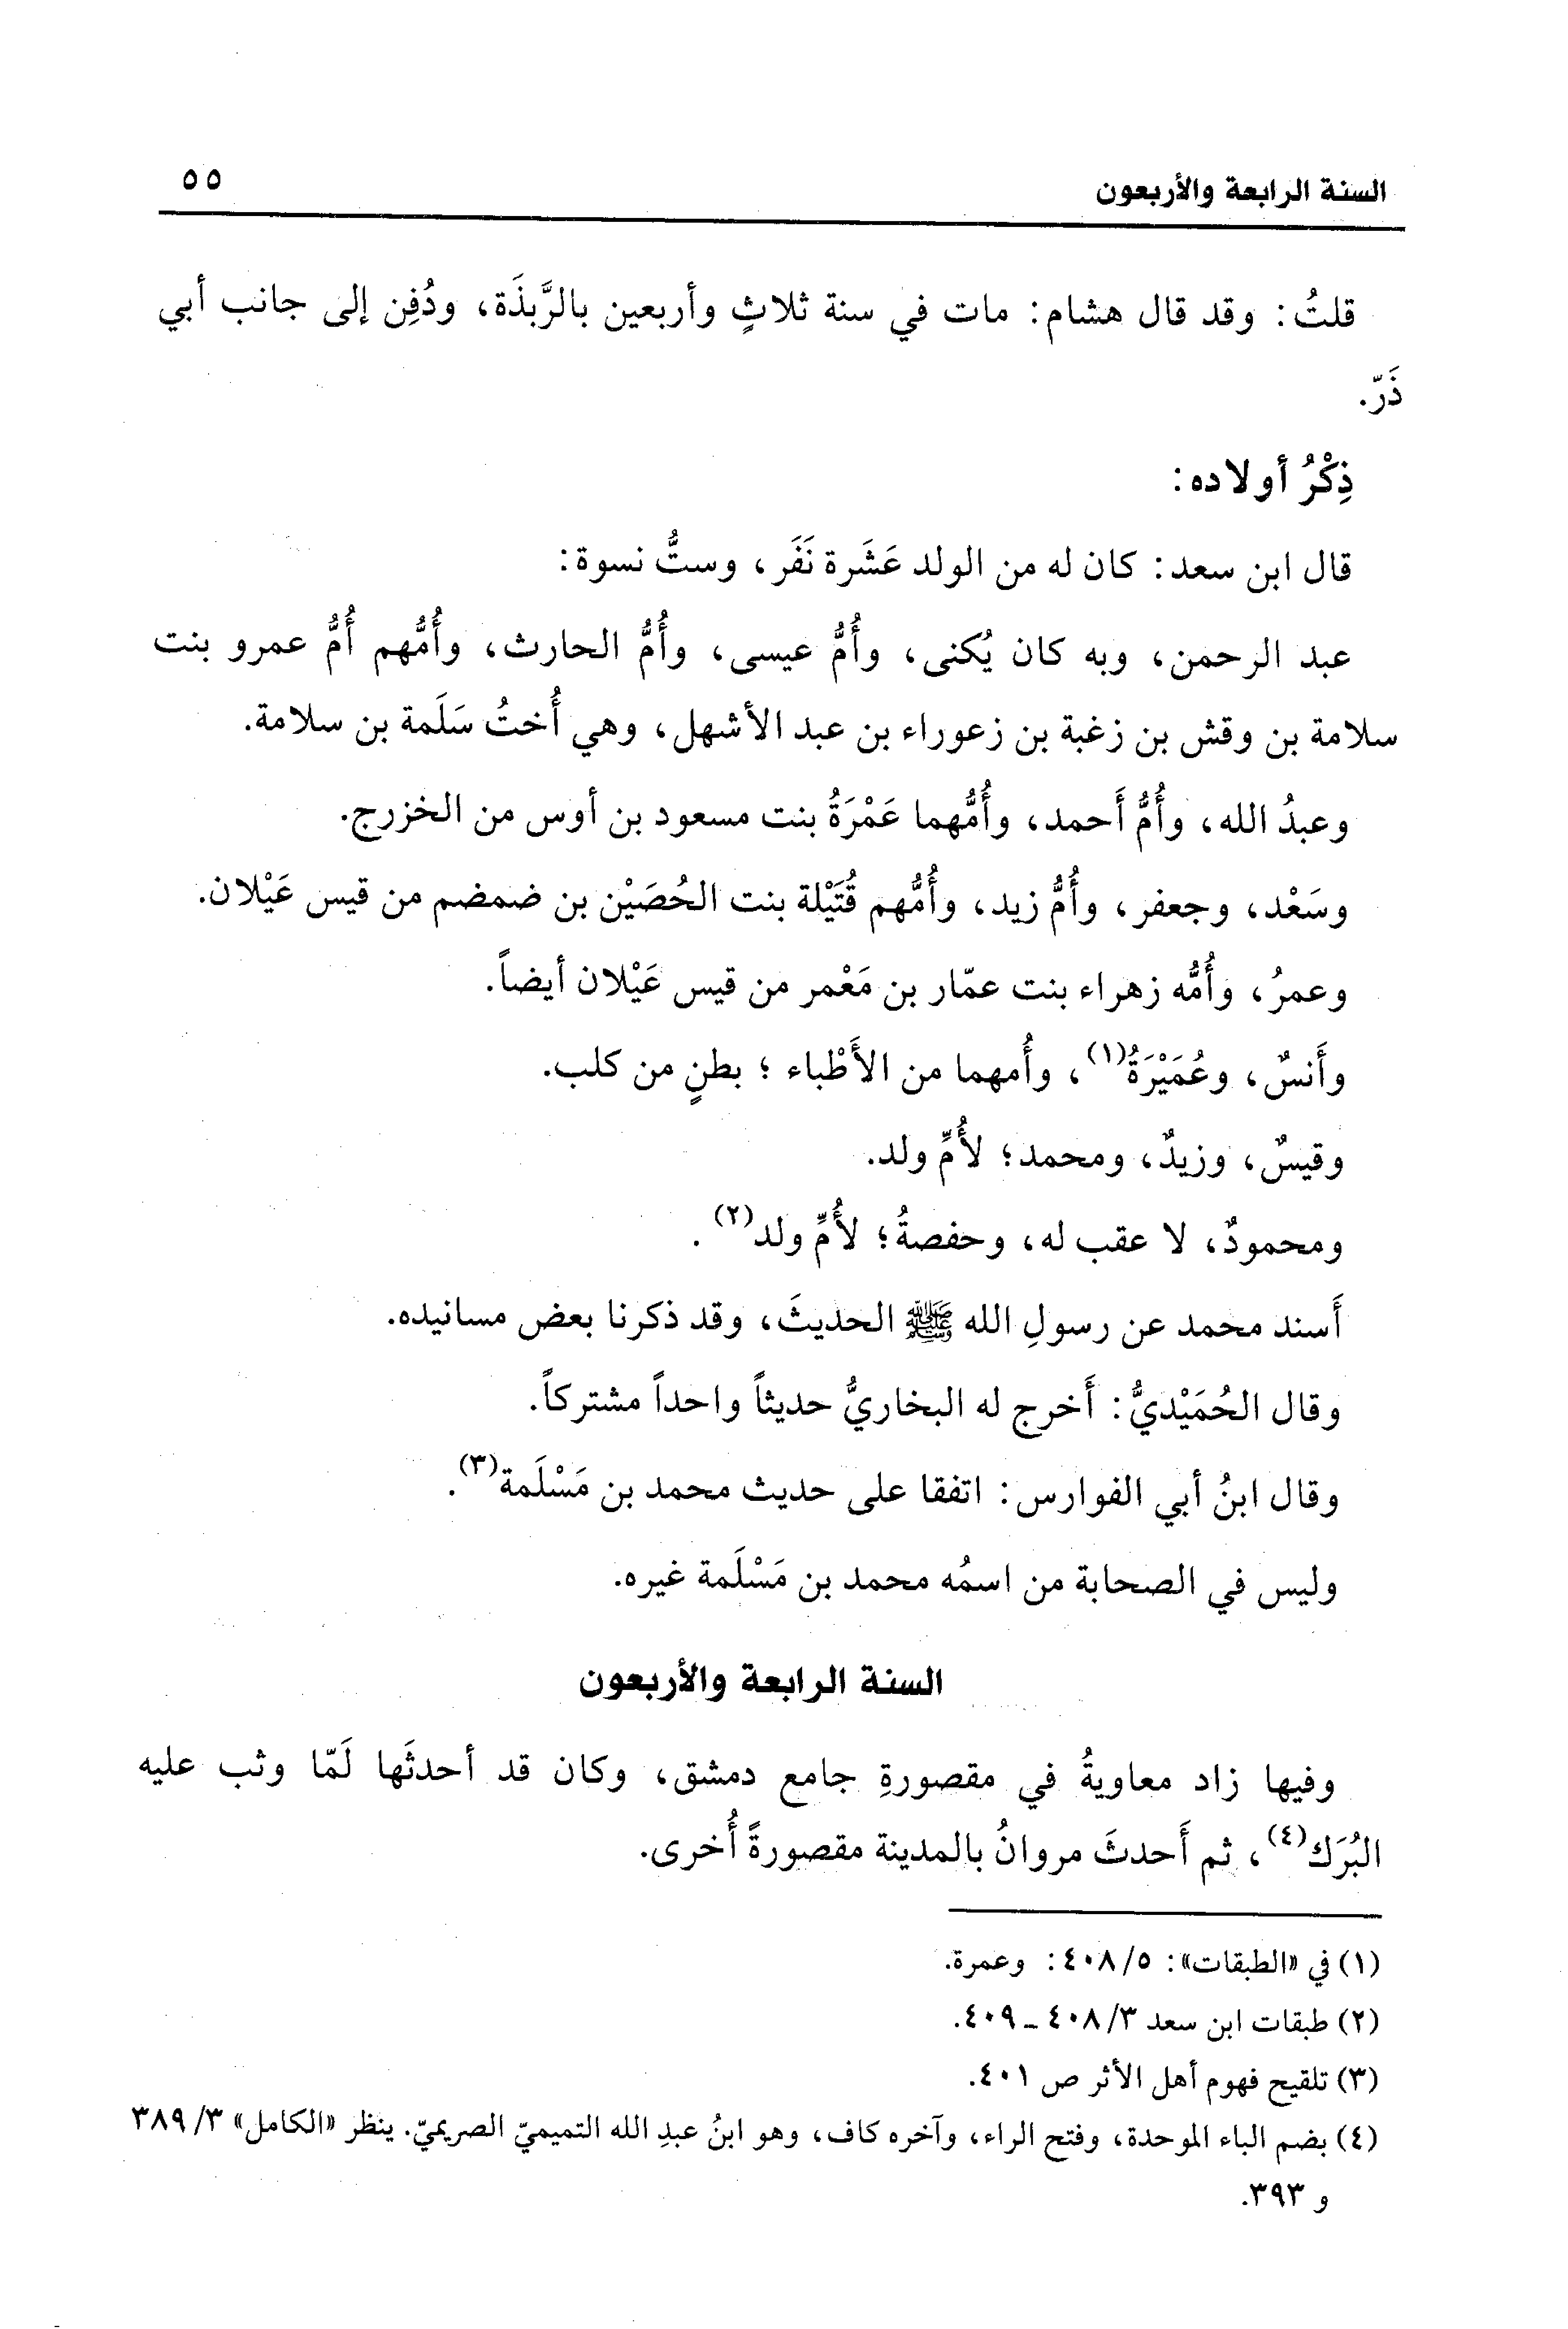 السنة الرابعة والأربعون ٥٥
قلتُ: وقد قال هشام: مات في سنة ثلاثٍ وأربعين بالرَّبذَة، ودُفِن إلى جانب أبي
ذَرّ.
ذِكْرُ أولاده:
قال ابن سعد: كان له من الولد عَشَرة نَفَر، وستُّ نسوة:
عبد الرحمن، وبه كان يُكنى، وأُمُّ عيسى، وأُمُّ الحارث، وأُمُّهم أُمُّ عمرو بنت
سلامة بن وقش بن زغبة بن زعوراء بن عبد الأشهل، وهي أُختُ سَلَمة بن سلامة.
وعبدُ الله، وأُمُّ أَحمد، وأُمُّهما عَمْرَةُ بنت مسعود بن أوس من الخزرج.
وسَعْد، وجعفر، وأُمُّ زيد، وأُمُّهم قُتَيْلة بنت الحُصَيْن بن ضمضم من قيس عَيْلان.
وعمرُ، وأُمُّه زهراء بنت عمّار بن مَعْمر من قيس عَيْلان أيضاً.
وأَنسٌ، وعُمَيْرَةُ(١)، وأُمهما من الأَظْباء؛ بطنٍ من كلب.
وقيسٌ، وزيدٌ، ومحمد؛ لأُمِّ ولد.
ومحمودٌ، لا عقب له، وحفصةُ؛ لأُمِّ ولد(٢).
أَسند محمد عن رسولِ الله ﷺ الحديثَ، وقد ذكرنا بعض مسانيده.
وقال الحُمَيْديُّ: أَخرج له البخاريُّ حديثاً واحداً مشتركاً.
وقال ابنُ أبي الفوارس: اتفقا على حديث محمد بن مَسْلَمة(٣).
وليس في الصحابة من اسمُه محمد بن مَسْلَمة غيره.
السنة الرابعة والأربعون
وفيها زاد معاويةُ في مقصورةِ جامع دمشق، وكان قد أحدثَها لَمّا وثب عليه
البُرَك(٤)، ثم أَحدثَ مروانُ بالمدينة مقصورةً أُخرى.
(١) في «الطبقات»: ٤٠٨/٥: وعمرة.
(٢) طبقات ابن سعد ٤٠٨/٣ - ٤٠٩.
(٣) تلقيح فهوم أهل الأثر ص ٤٠١.
(٤) بضم الباء الموحدة، وفتح الراء، وآخره كاف، وهو ابنُ عبدِ الله التميميّ الصريميّ. ينظر «الكامل» ٣٨٩/٣
و ٣٩٣.